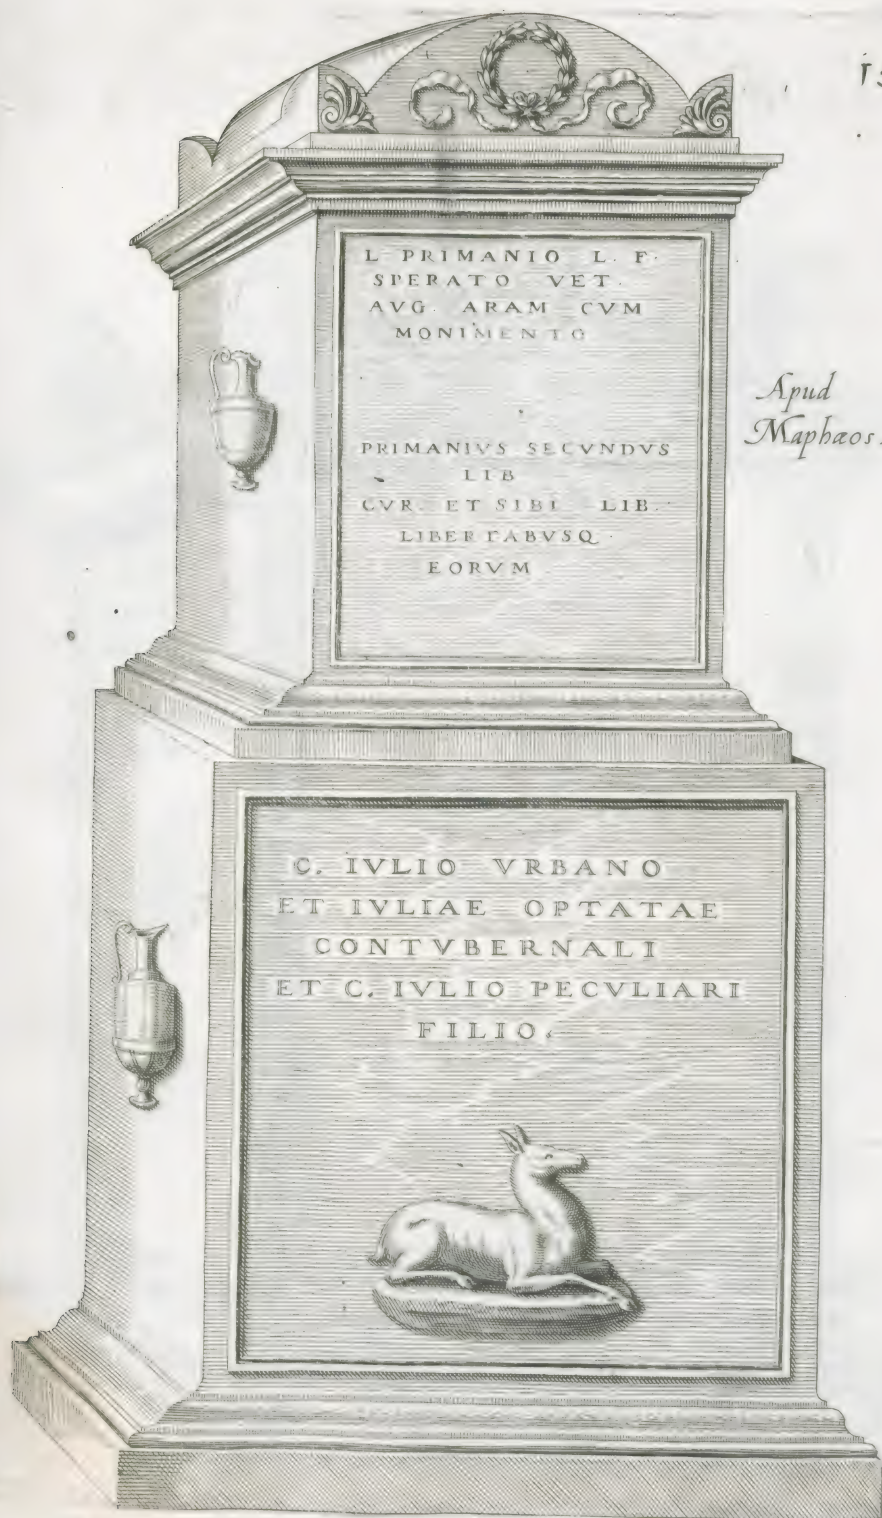 L PRIMANIO L. F.
SPERATO VET.
AVG. ARAM CVM
MONIMENTO
PRIMANIVS SECVNDVS
LIB
CVR. ET SIBI LIB.
LIBERTABVSQ.
EORVM
Apud
Maphæos.
C. IVLIO VRBANO
ET IVLIAE OPTATAE
CONTVBERNALI
ET C. IVLIO PECVLIARI
FILIO.